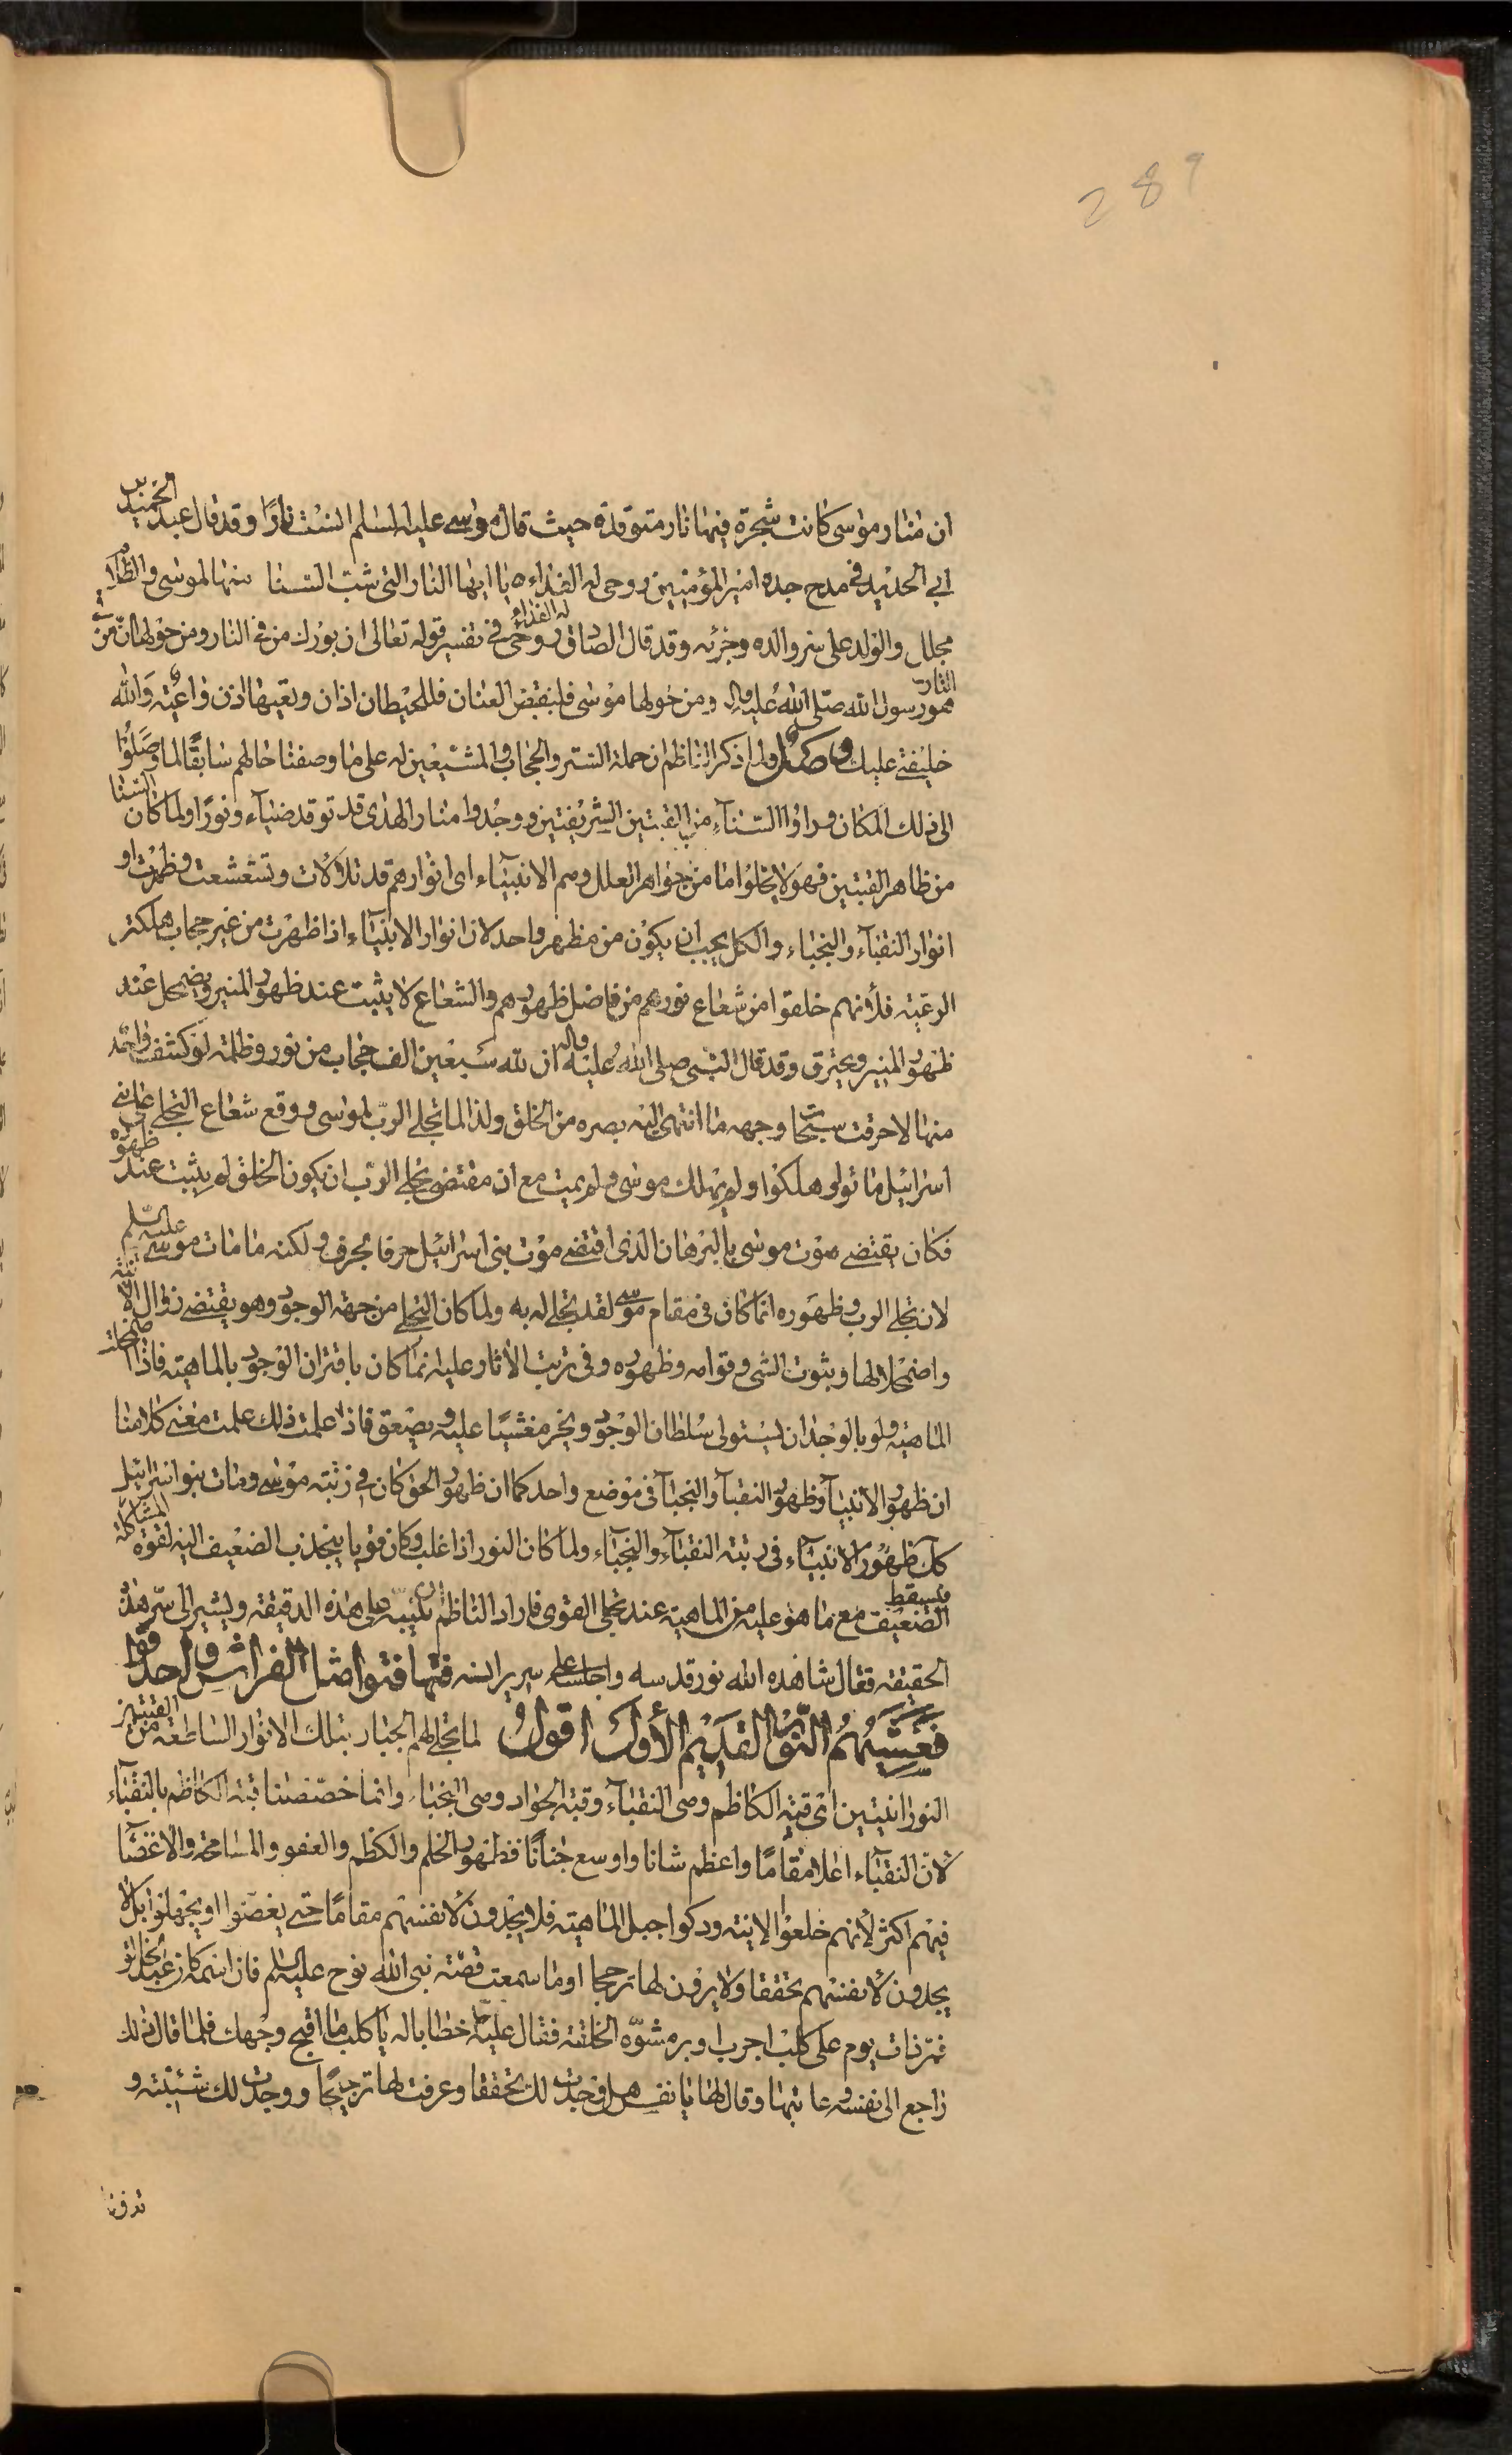 289
ان منار موسى كانت شجرة فيها نار متوقدة حيث قال موسى عليه السلم انست نارا وقد قال عبد الحميد بن
ابي الحديد في مدح جده امير المؤمنين روحي له الفداء يا ايها النار التي شب السنا منها لموسى والظلام
مجلل والولد على سر والده وجزئه وقد قال الصادق روحي له الفداء في تفسير قوله تعالى ان بورك من في النار ومن حولها ان من في النار
محمد رسول الله صلى الله عليه واله ومن حولها موسى فلنقبض العنان فللحيطان اذان وتعيها اذن واعية والله
خليفتي عليك ولما ذكر الناظم ان حملة الستر والحجاب والمشيعين له على ما وصفنا حالهم سابقا لما وصلوا
الى ذلك المكان وراوا السناء من القبتين الشريفتين ووجدوا منار الهدى قد توقد ضياء ونورا ولما كان السنا
من ظاهر القبتين فهو لا يخلوا اما من جواهر العلل وهم الانبياء اي انوارهم قد تلألأت وتشعشعت وظهرت او
انوار النقباء والنجباء والكل يجب ان يكون من مظهر واحد لان انوار الانبياء اذا ظهرت من غير حجاب هلكت
الرعية فلأنهم خلقوا من شعاع نورهم من فاضل ظهورهم والشعاع لا يثبت عند ظهور المنير ويضمحل عند
ظهور المنير ويحترق وقد قال النبي صلى الله عليه واله ان لله سبعين الف حجاب من نور وظلمة لو كشف واحد
منها لاحرقت سبحات وجهه ما انتهى اليه بصره من الخلق ولذا لما تجلى الرب لموسى ووقع شعاع التجلي على بني
اسرائيل ماتوا وهلكوا ولم يهلك موسى ولم يمت مع ان مقتضى تجلي الرب ان يكون الخلق لم يثبت عند ظهوره
فكان يقتضي موت موسى بالبرهان الذي اقتضى موت بني اسرائيل حرفا بحرف ولكنه ما مات موسى عليه السلم
لان تجلي الرب وظهوره انما كان في مقام موسى لقد تجلى له به ولما كان التجلي من جهة الوجود وهو يقتضي زوال الانية
واضمحلالها وبثوت الشئ وقوامه وظهوره وفي ترتب الأثار عليه انما كان باقتران الوجود بالماهية فاذا اضمحلت
الماهية ولو بالوجدان يستولى سلطان الوجود ويخر مغشيا عليه ويصعق فاذا علمت ذلك علمت معنى كلامنا
ان ظهور الانبياء وظهور النقباء والنجباء في موضع واحد كما ان ظهور الحق كان في رتبة موسى ومات بنو اسرائيل
كك ظهور الانبياء في رتبة النقباء والنجباء ولما كان النور اذا غلب وكان قويا ينجذب الضعيف اليه لقوة المشاكلة
فيسقط الضعيف مع ما هو عليه من الماهية عند تجلي القوي فاراد الناظم ان ينبه على هذه الدقيقة ويشير الى سر هذه
الحقيقة فقال شاهده الله نور قدسه واجلسه على سرير انسه فتهافتوا مثل الفراش واحدقوا
فعشيهم النور القديم الأول اقول لما تجلى لهم الجبار بتلك الانوار الساطعة من القبتين
النورانيتين اي قبة الكاظم وهي النقباء وقبة الجواد وهي النجباء وانما خصصنا قبة الكاظم بالنقباء
لان النقباء اعلا مقاما واعظم شانا واوسع جنانا فظهور الحلم والكظم والعفو والمسامحة والاغضاء
فيهم اكثر لأنهم خلعوا الإنية ودكوا جبل الماهية فلا يجدون لأنفسهم مقاما حتى يغضوا او يجهلوا بل لا
يجدون لأنفسهم تحققا ولا يرون لها ترجحا اوما سمعت قصة نبي الله نوح عليه السلم فان اسمه كان عبد الخالق
ثم ذات يوم على كلب اجرب ابرص مشوه الخلقة فقال عليه خطابا له يا كلب ما اقبح وجهك فلما قال ذلك
راجع الى نفسه وعاتبها وقال لها يا نفس هل وجدت لك تحققا وعرفت لها ترجيحا ووجدت لك شيئية و